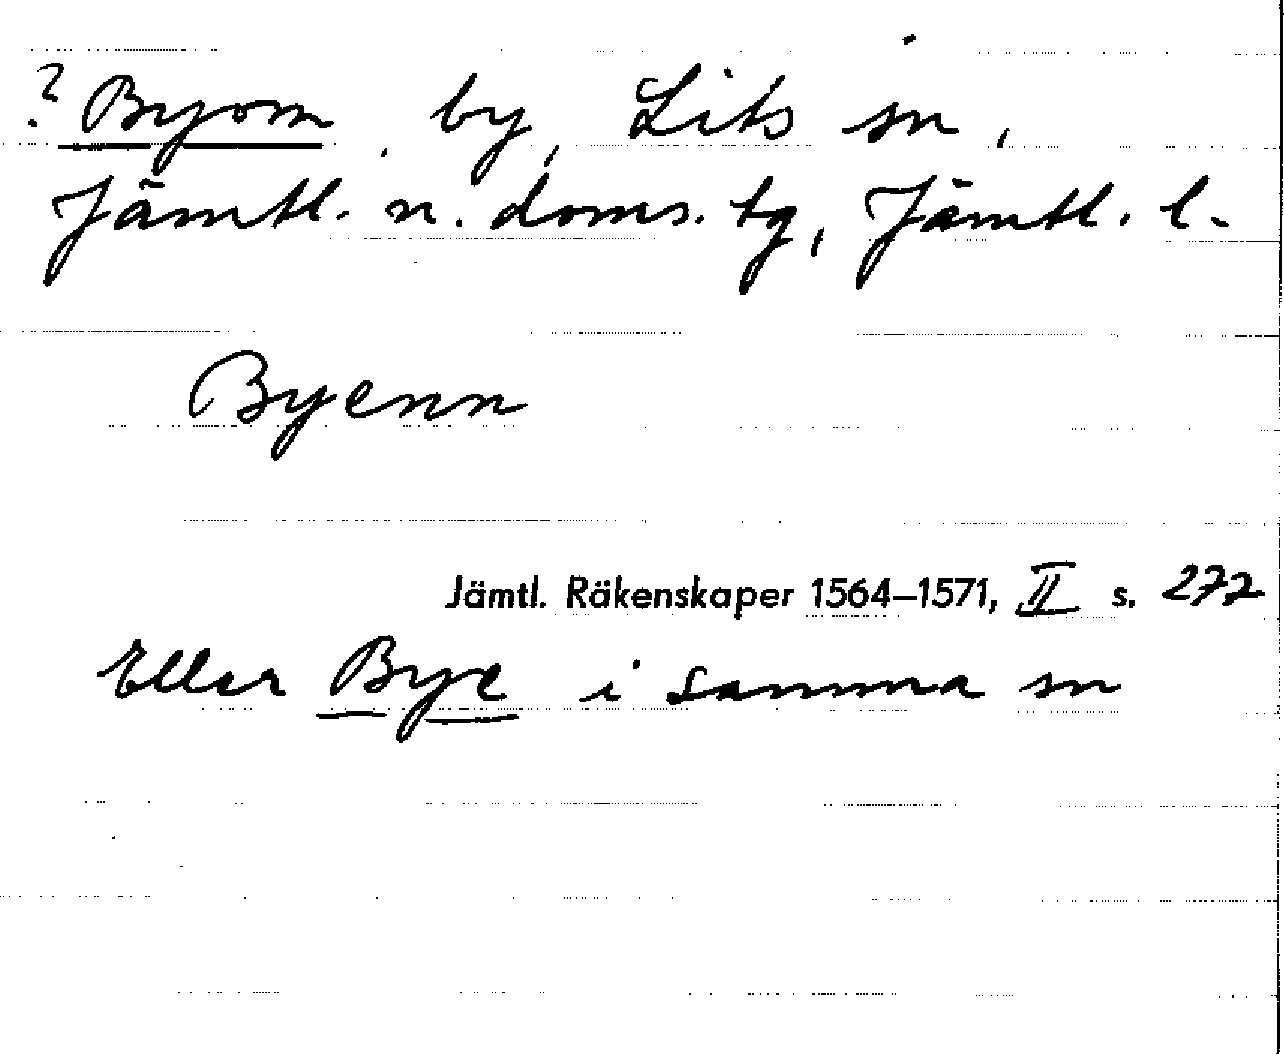 ? Byom, by, Lits sn,
Jämtl. n. doms. tg, Jämtl. l.
Byenn
Jämtl. Räkenskaper 1564–1571, II s. 272
Eller Bye i samma sn